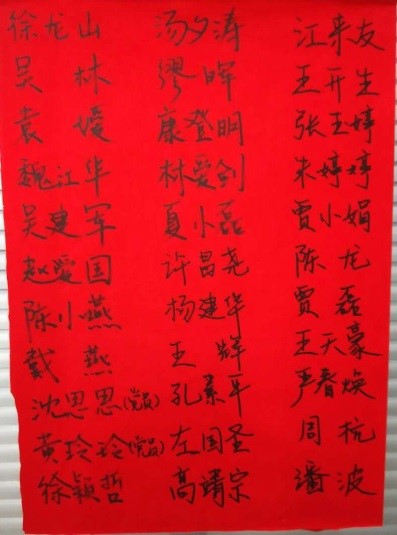 徐龙山 汤夕涛 江来友
吴林 缪晖 王开生
袁媛 康登明 张玉婷
魏江华 林爱剑 朱婷婷
吴建军 夏小磊 贾小娟
赵爱国 许昌尧 陈龙
陈小燕 杨建华 贾磊
戴燕 王辉 王天豪
沈思思(党员) 孔素平 严春焕
黄玲玲(党员) 左国圣 周杭
徐颖哲 高靖宗 潘波